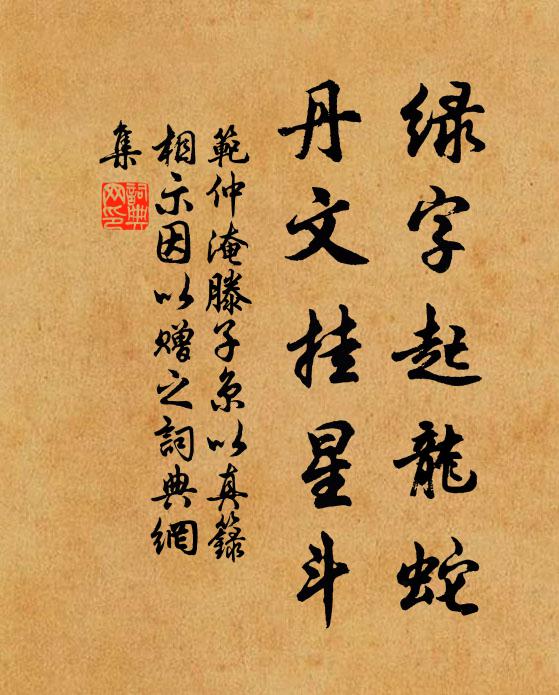 绿字起龍蛇
丹文挂星斗
範仲淹滕子京以真籙
相示因以赠之詞典網
集
詞典
网印